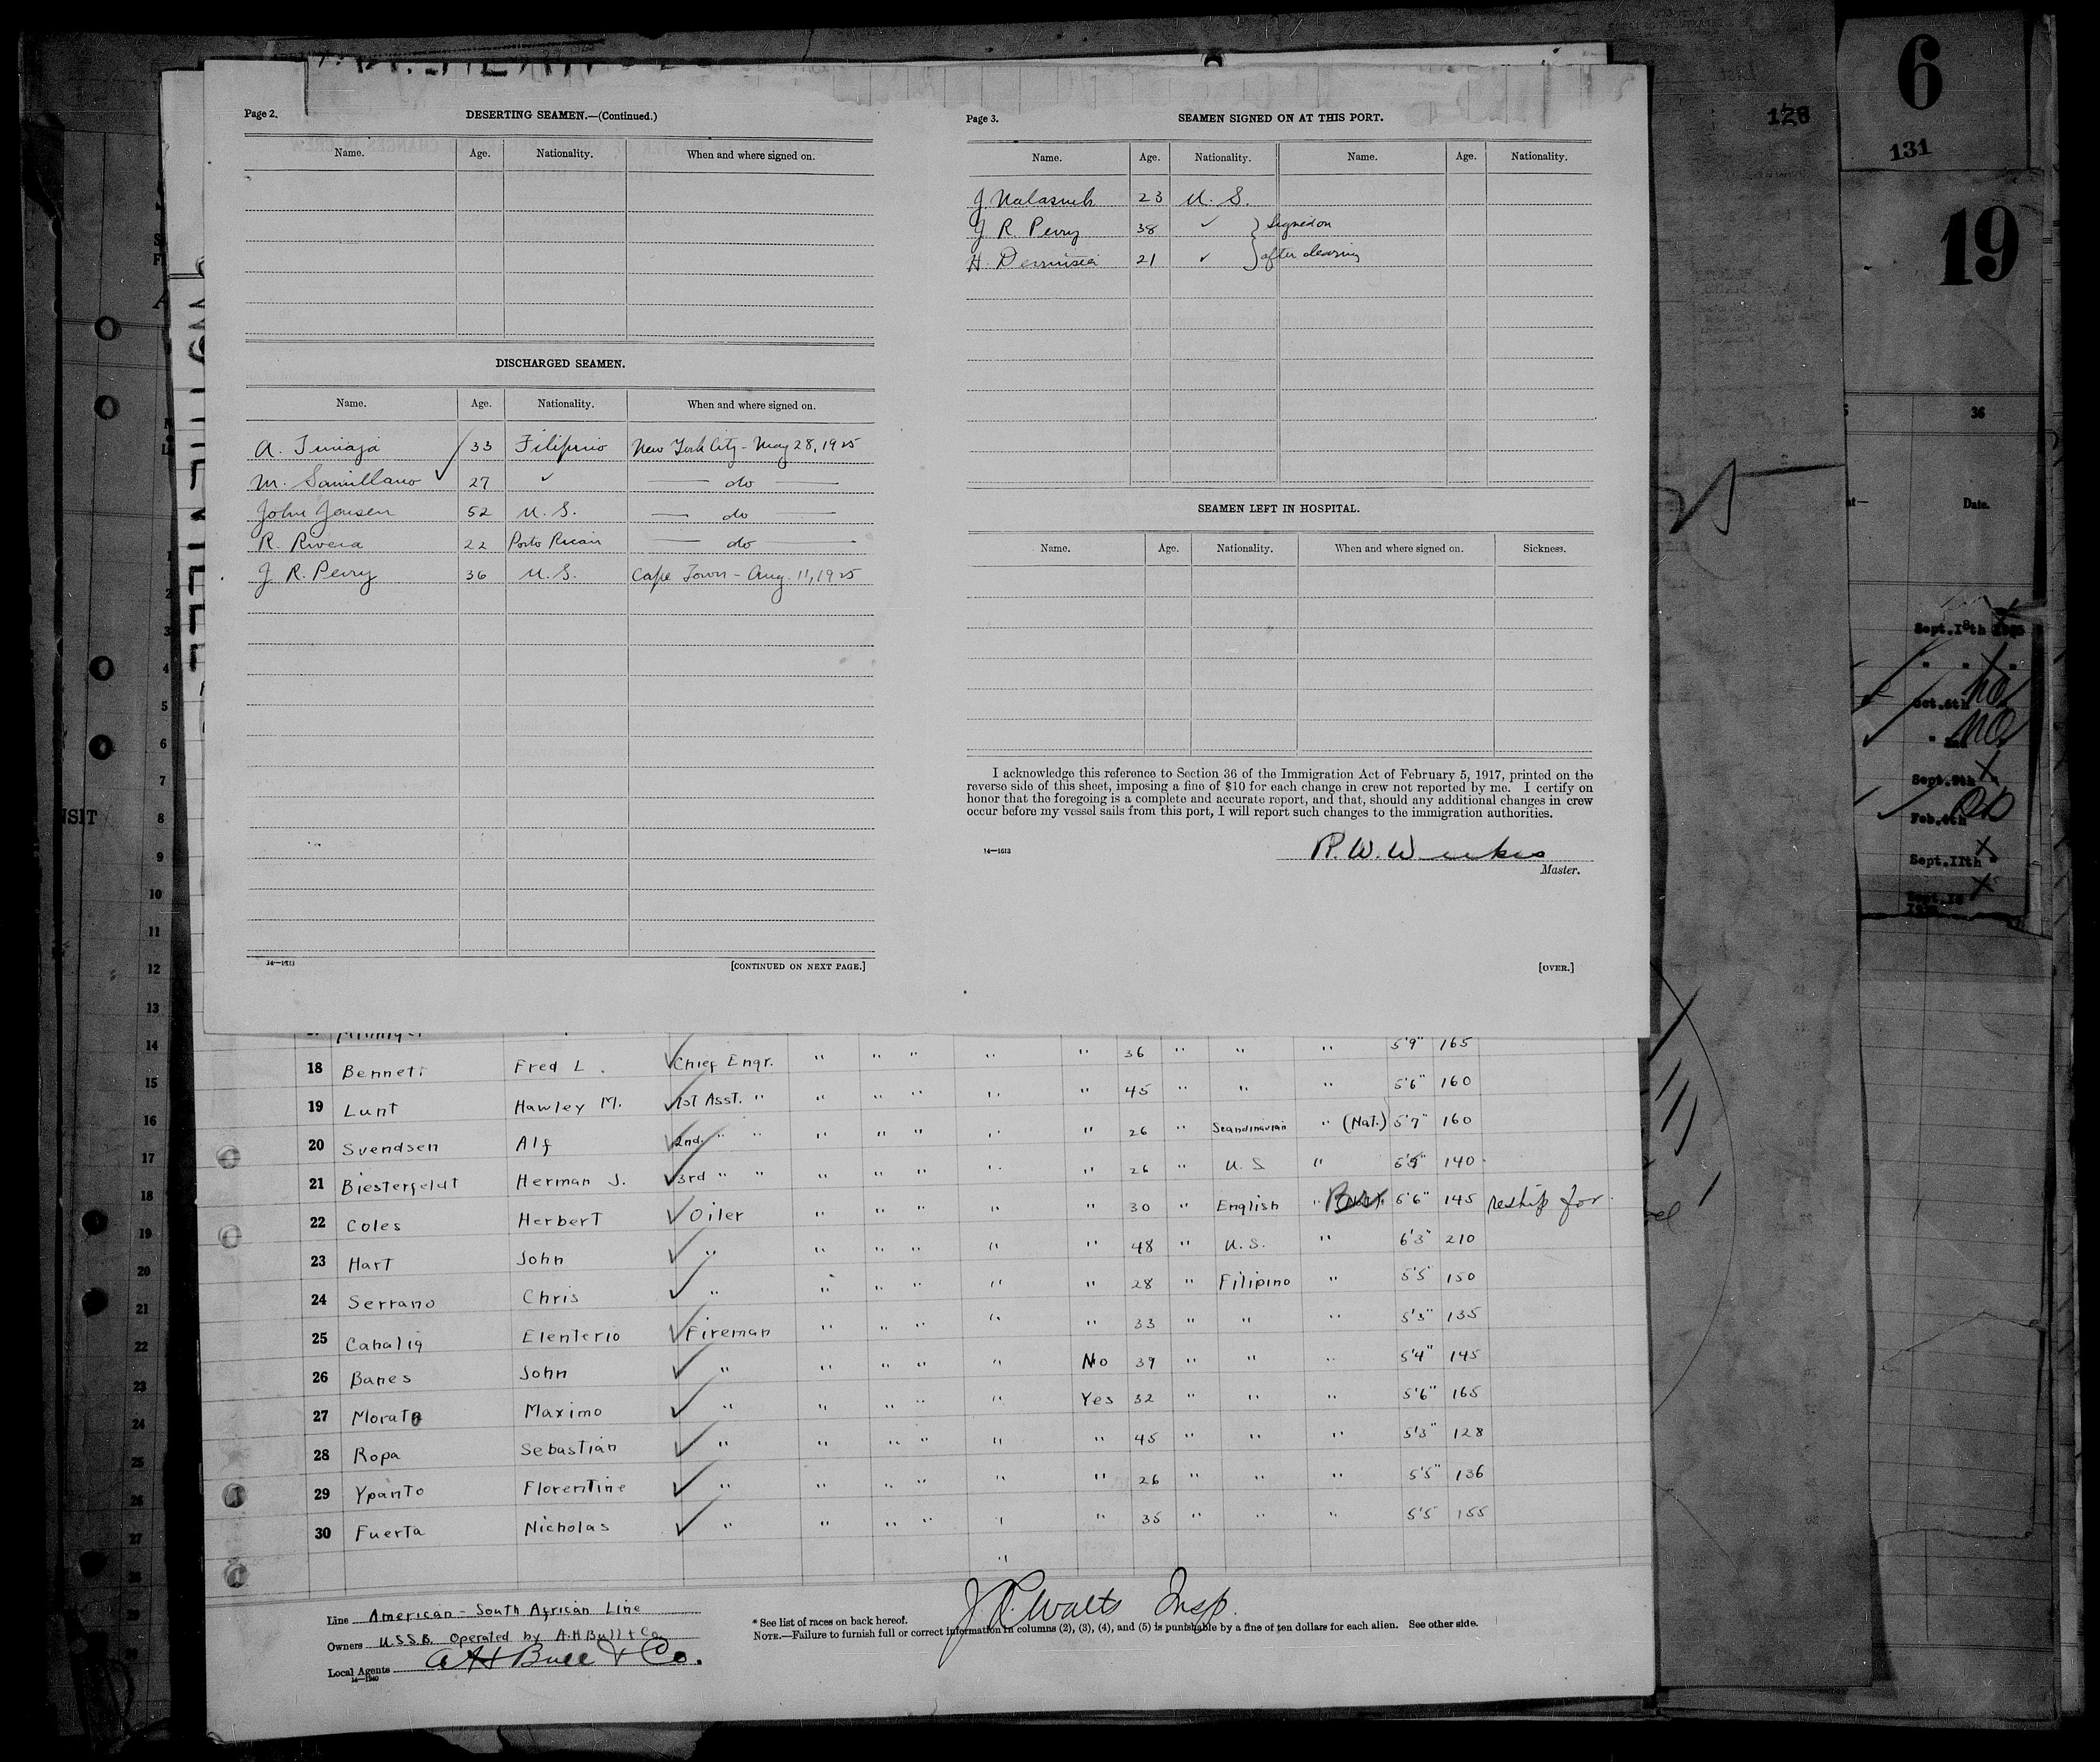 Page 2.
DESERTING SEAMEN.—(Continued.)
Name. Age. Nationality. When and where signed on.
DISCHARGED SEAMEN.
Name. Age. Nationality. When and where signed on.
A. 33 Filipino New York City - May 28, 1925
M. Samillano 27 ✓ — do —
John Jensen 52 U. S. — do —
R. Rivera 22 Porto Rican — do —
J. R. Perry 36 U. S. Cape Town - Aug. 11, 1925
14—1613
[CONTINUED ON NEXT PAGE.]
Page 3.
SEAMEN SIGNED ON AT THIS PORT.
Name. Age. Nationality. Name. Age. Nationality.
J. 23 U. S.
J. R. Perry 38 ✓ } Signed on
H. 21 ✓ } after clearing
SEAMEN LEFT IN HOSPITAL.
Name. Age. Nationality. When and where signed on. Sickness.
I acknowledge this reference to Section 36 of the Immigration Act of February 5, 1917, printed on the
reverse side of this sheet, imposing a fine of $10 for each change in crew not reported by me. I certify on
honor that the foregoing is a complete and accurate report, and that, should any additional changes in crew
occur before my vessel sails from this port, I will report such changes to the immigration authorities.
14—1613
R. W.
Master.
[OVER.]
18 Bennett Fred L. Chief Engr. " " " " " 36 " " " 5'9" 165
19 Lunt Hawley M. 1st Asst. " " " " " " 45 " " " 5'6" 160
20 Svendsen Alf 2nd " " " " " " " 26 " Scandinavian " (Nat.) 5'7" 160
21 Biesterfeldt Herman J. 3rd " " " " " " " 26 " U. S " 5'9" 140
22 Coles Herbert Oiler " " " " " 30 " English " 5'6" 145 reship for
23 Hart John " " " " " " 48 " U. S. " 6'3" 210
24 Serrano Chris " " " " " " 28 " Filipino " 5'5 150
25 Cahalig Elenterio Fireman " " " " " 33 " " " 5'3" 135
26 Banes John " " " " " No 39 " " " 5'4" 145
27 Morato Maximo " " " " " Yes 32 " " " 5'6" 165
28 Ropa Sebastian " " " " " " 45 " " " 5'3" 128
29 Ypanto Florentine " " " " " " 26 " " " 5'5" 136
30 Fuerta Nicholas " " " " " " 35 " " " 5'5 155
Line American - South African Line
Owners U.S.S.B. Operated by A.H Bull & Co.
Local Agents A H Bull & Co.
14—1940
* See list of races on back hereof.
J. Watts Insp.
NOTE.—Failure to furnish full or correct information in columns (2), (3), (4), and (5) is punishable by a fine of ten dollars for each alien. See other side.
NSIT
1
2
3
4
5
6
7
8
9
10
11
12
13
14
15
16
17
18
19
20
21
22
23
24
25
26
27
28
29
30
128
6
131
19
36
Date.
Sept.18th
Oct.6th no
" no
Sept.9th
Feb.
Sept.IIth